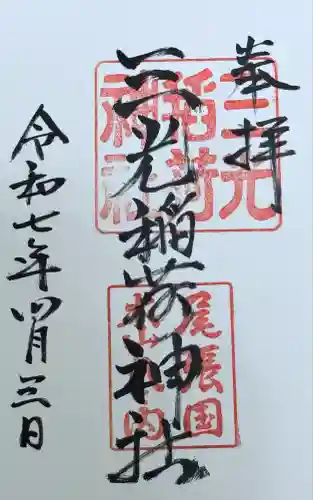 奉拝
三光稲荷神社
令和七年四月三日
三光
稲荷
神社
尾張国
犬山城内